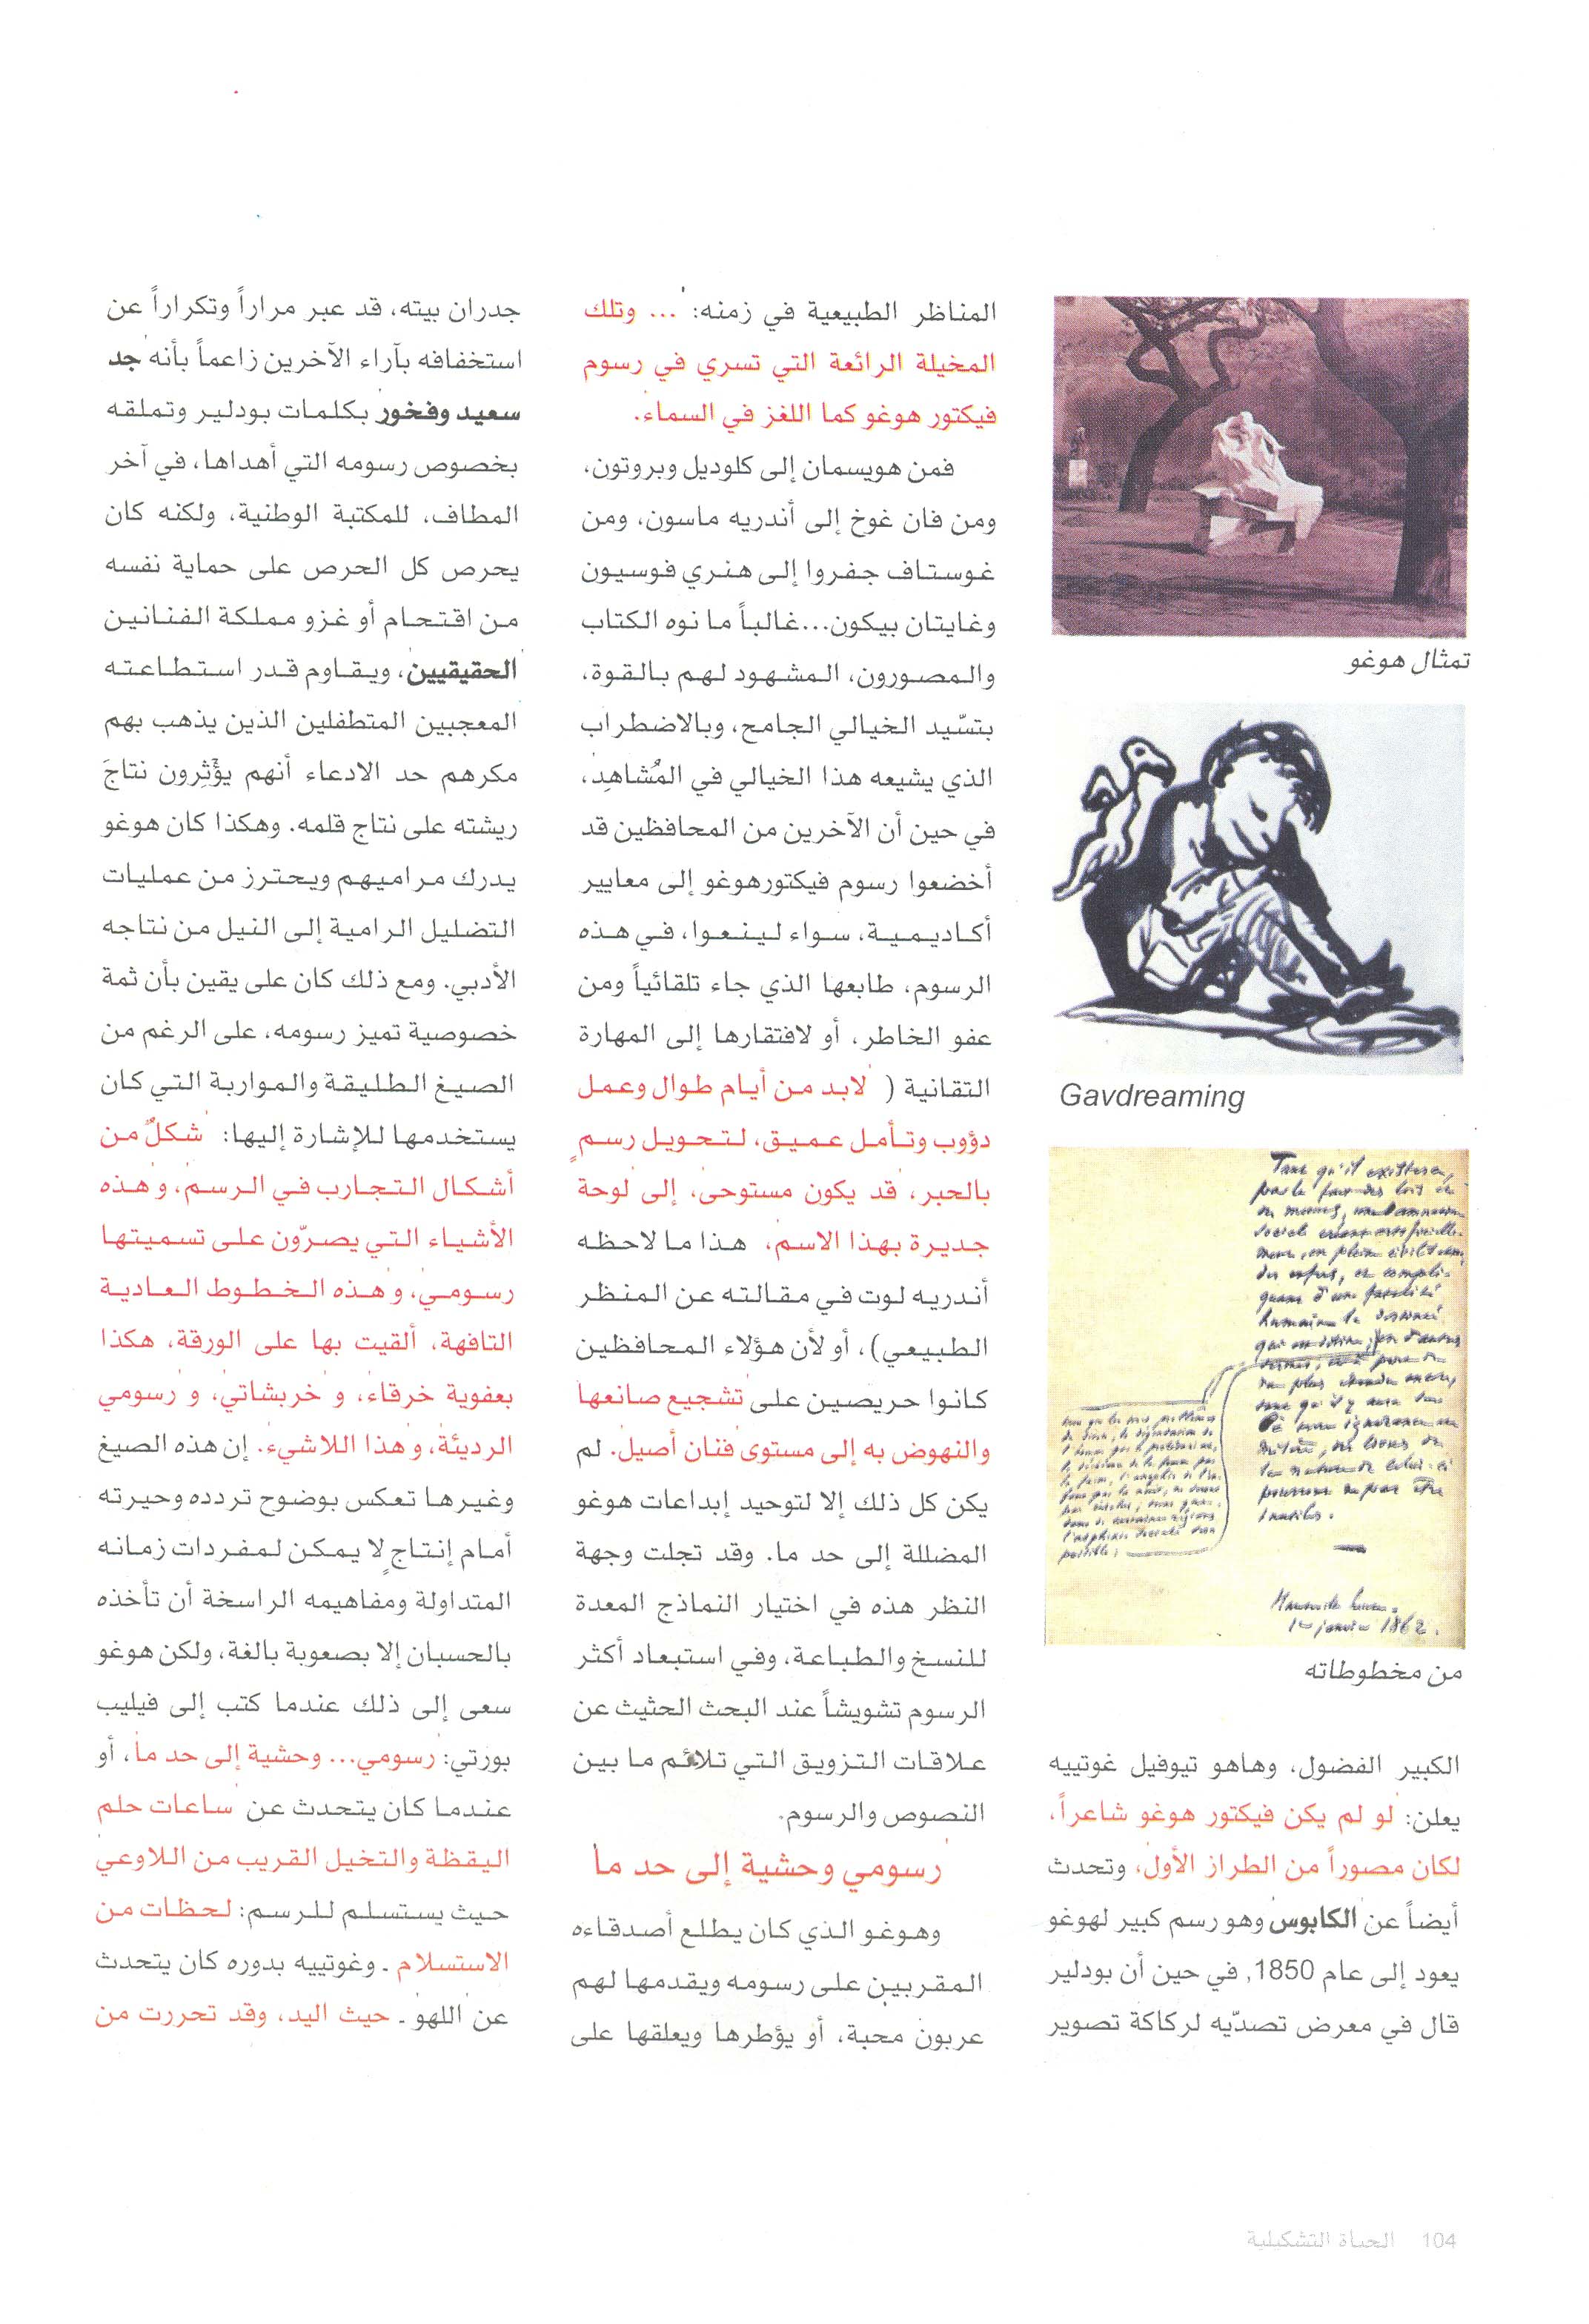 تمثال هوغو
Gavdreaming
من مخطوطاته
الكبير الفضول، وهاهو تيوفيل غوتييه
يعلن: لو لم يكن فيكتور هوغو شاعراً،
لكان مصوراً من الطراز الأول، وتحدث
أيضاً عن الكابوس وهو رسم كبير لهوغو
يعود إلى عام 1850, في حين أن بودلير
قال في معرض تصدّيه لركاكة تصوير
المناظر الطبيعية في زمنه: ... وتلك
المخيلة الرائعة التي تسري في رسوم
فيكتور هوغو كما اللغز في السماء.
فمن هويسمان إلى كلوديل وبروتون،
ومن فان غوخ إلى أندريه ماسون، ومن
غوستاف جفروا إلى هنري فوسيون
وغايتان بيكون...غالباً ما نوه الكتاب
والمصورون، المشهود لهم بالقوة،
بتسّيد الخيالي الجامح، وبالاضطراب
الذي يشيعه هذا الخيالي في المُشاهِد،
في حين أن الآخرين من المحافظين قد
أخضعوا رسوم فيكتورهوغو إلى معايير
أكاديمية، سواء لينعوا، في هذه
الرسوم، طابعها الذي جاء تلقائياً ومن
عفو الخاطر، أو لافتقارها إلى المهارة
التقانية ( لابد من أيام طوال وعمل
دؤوب وتأمل عميق، لتحويل رسمٍ
بالحبر، قد يكون مستوحى، إلى لوحة
جديرة بهذا الاسم، هذا ما لاحظه
أندريه لوت في مقالته عن المنظر
الطبيعي)، أو لأن هؤلاء المحافظين
كانوا حريصين على تشجيع صانعها
والنهوض به إلى مستوى فنان أصيل. لم
يكن كل ذلك إلا لتوحيد إبداعات هوغو
المضللة إلى حد ما. وقد تجلت وجهة
النظر هذه في اختيار النماذج المعدة
للنسخ والطباعة، وفي استبعاد أكثر
الرسوم تشويشاً عند البحث الحثيث عن
علاقات التزويق التي تلائم ما بين
النصوص والرسوم.
رسومي وحشية إلى حد ما
وهوغو الذي كان يطلع أصدقاءه
المقربين على رسومه ويقدمها لهم
عربون محبة، أو يؤطرها ويعلقها على
جدران بيته، قد عبر مراراً وتكراراً عن
استخفافه بآراء الآخرين زاعماً بأنه جد
سعيد وفخور بكلمات بودلير وتملقه
بخصوص رسومه التي أهداها، في آخر
المطاف، للمكتبة الوطنية، ولكنه كان
يحرص كل الحرص على حماية نفسه
من اقتحام أو غزو مملكة الفنانين
الحقيقيين، ويقاوم قدر استطاعته
المعجبين المتطفلين الذين يذهب بهم
مكرهم حد الادعاء أنهم يؤْثِرون نتاجَ
ريشته على نتاج قلمه. وهكذا كان هوغو
يدرك مراميهم ويحترز من عمليات
التضليل الرامية إلى النيل من نتاجه
الأدبي. ومع ذلك كان على يقين بأن ثمة
خصوصية تميز رسومه، على الرغم من
الصيغ الطليقة والمواربة التي كان
يستخدمها للإشارة إليها: شكلٌ من
أشكال التجارب في الرسم، وهذه
الأشياء التي يصرّون على تسميتها
رسومي، وهذه الخطوط العادية
التافهة، ألقيت بها على الورقة، هكذا
بعفوية خرقاء، و خربشاتي، و رسومي
الرديئة، وهذا اللاشيء. إن هذه الصيغ
وغيرها تعكس بوضوح تردده وحيرته
أمام إنتاجٍ لا يمكن لمفردات زمانه
المتداولة ومفاهيمه الراسخة أن تأخذه
بالحسبان إلا بصعوبة بالغة، ولكن هوغو
سعى إلى ذلك عندما كتب إلى فيليب
بورتي: رسومي... وحشية إلى حد ما، أو
عندما كان يتحدث عن ساعات حلم
اليقظة والتخيل القريب من اللاوعي
حيث يستسلم للرسم: لحظات من
الاستسلام ـ وغوتييه بدوره كان يتحدث
عن اللهو ـ حيث اليد، وقد تحررت من
104 الحياة التشكيلية